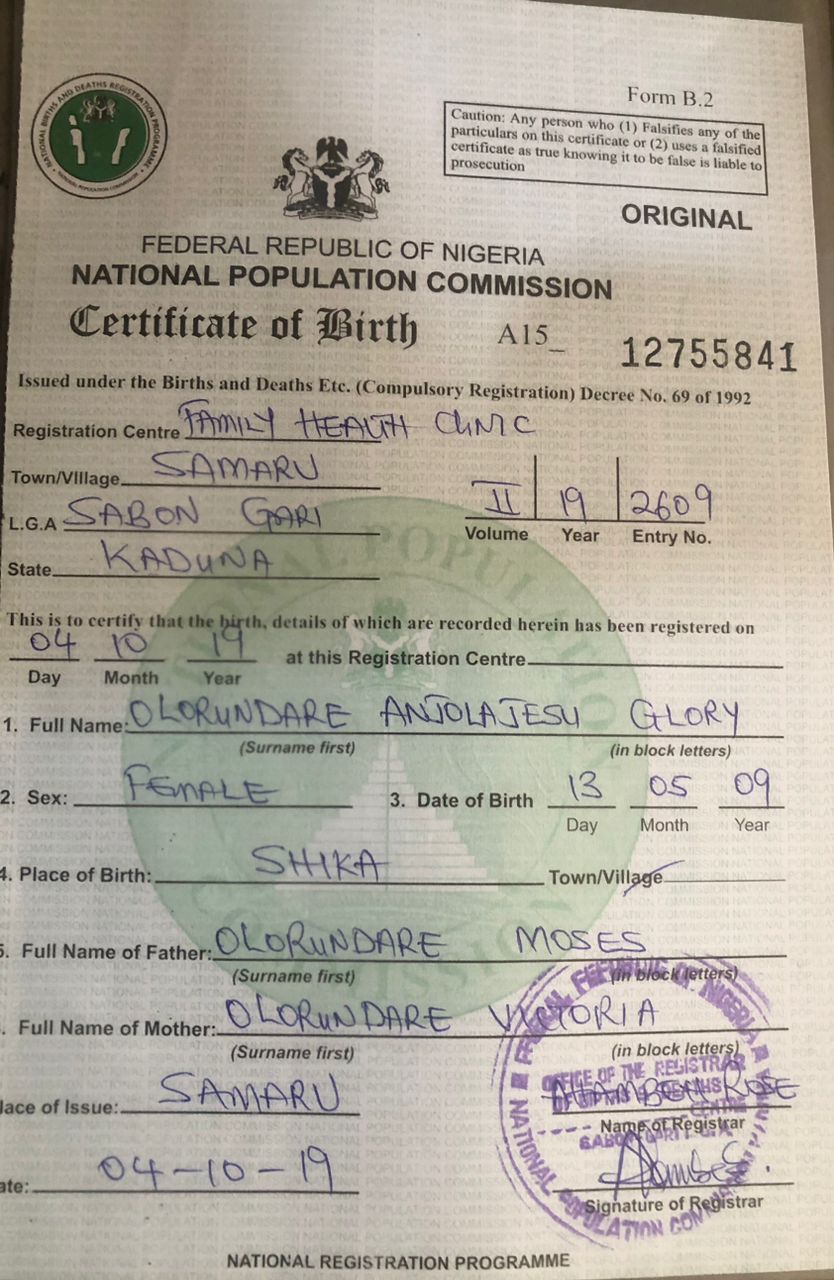 NATIONAL BIRTHS AND DEATHS REGISTRATION PROGRAMME
NATIONAL POPULATION COMMISSION
Form B.2
Caution: Any person who (1) Falsifies any of the
particulars on this certificate or (2) uses a falsified
certificate as true knowing it to be false is liable to
prosecution
ORIGINAL
FEDERAL REPUBLIC OF NIGERIA
NATIONAL POPULATION COMMISSION
Certificate of Birth A15_ 12755841
Issued under the Births and Deaths Etc. (Compulsory Registration) Decree No. 69 of 1992
Registration Centre FAMILY HEALTH CLINIC
Town/Village SAMARU
L.G.A SABON GARI II 19 2609
Volume Year Entry No.
State KADUNA
This is to certify that the birth, details of which are recorded herein has been registered on
04 10 19 at this Registration Centre
Day Month Year
1. Full Name: OLORUNDARE ANJOLAJESU GLORY
(Surname first) (in block letters)
2. Sex: FEMALE 3. Date of Birth 13 05 09
Day Month Year
4. Place of Birth: SHIKA Town/Village
5. Full Name of Father: OLORUNDARE MOSES
(Surname first) (in block letters)
. Full Name of Mother: OLORUNDARE VICTORIA
(Surname first) (in block letters)
lace of Issue: SAMARU
ROSE
Name of Registrar
ate: 04-10-19
Signature of Registrar
FEDERAL REPUBLIC OF NIGERIA
OFFICE OF THE REGISTRAR
NATIONAL POPULATION COMMISSION
NATIONAL REGISTRATION PROGRAMME